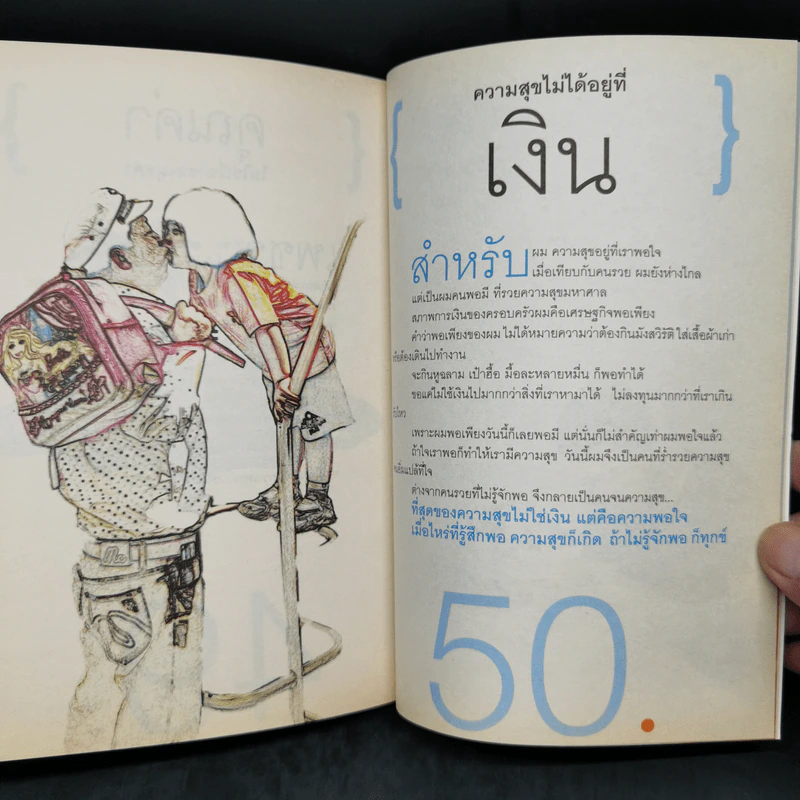 ความสุขไม่ได้อยู่ที่
{ เงิน }
สำหรับผม ความสุขอยู่ที่เราพอใจ
เมื่อเทียบกับคนรวย ผมยังห่างไกล
แต่เป็นผมคนพอมี ที่รวยความสุขมหาศาล
สภาพการเงินของครอบครัวผมคือเศรษฐกิจพอเพียง
คำว่าพอเพียงของผม ไม่ได้หมายความว่าต้องกินมังสวิรัติ ใส่เสื้อผ้าเก่า
หรือต้องเดินไปทำงาน
จะกินหูฉลาม เป๋าฮื้อ มื้อละหลายหมื่น ก็พอทำได้
ขอแค่ไม่ใช้เงินไปมากกว่าสิ่งที่เราหามาได้ ไม่ลงทุนมากกว่าที่เราเกิน
ไหว
เพราะผมพอเพียงวันนี้ก็เลยพอมี แต่นั่นก็ไม่สำคัญเท่าผมพอใจแล้ว
ถ้าใจเราพอก็ทำให้เรามีความสุข วันนี้ผมจึงเป็นคนที่ร่ำรวยความสุข
จนยิ้มแปล้ที่ใจ
ต่างจากคนรวยที่ไม่รู้จักพอ จึงกลายเป็นคนจนความสุข...
ที่สุดของความสุขไม่ใช่เงิน แต่คือความพอใจ
เมื่อไหร่ที่รู้สึกพอ ความสุขก็เกิด ถ้าไม่รู้จักพอ ก็ทุกข์
50.